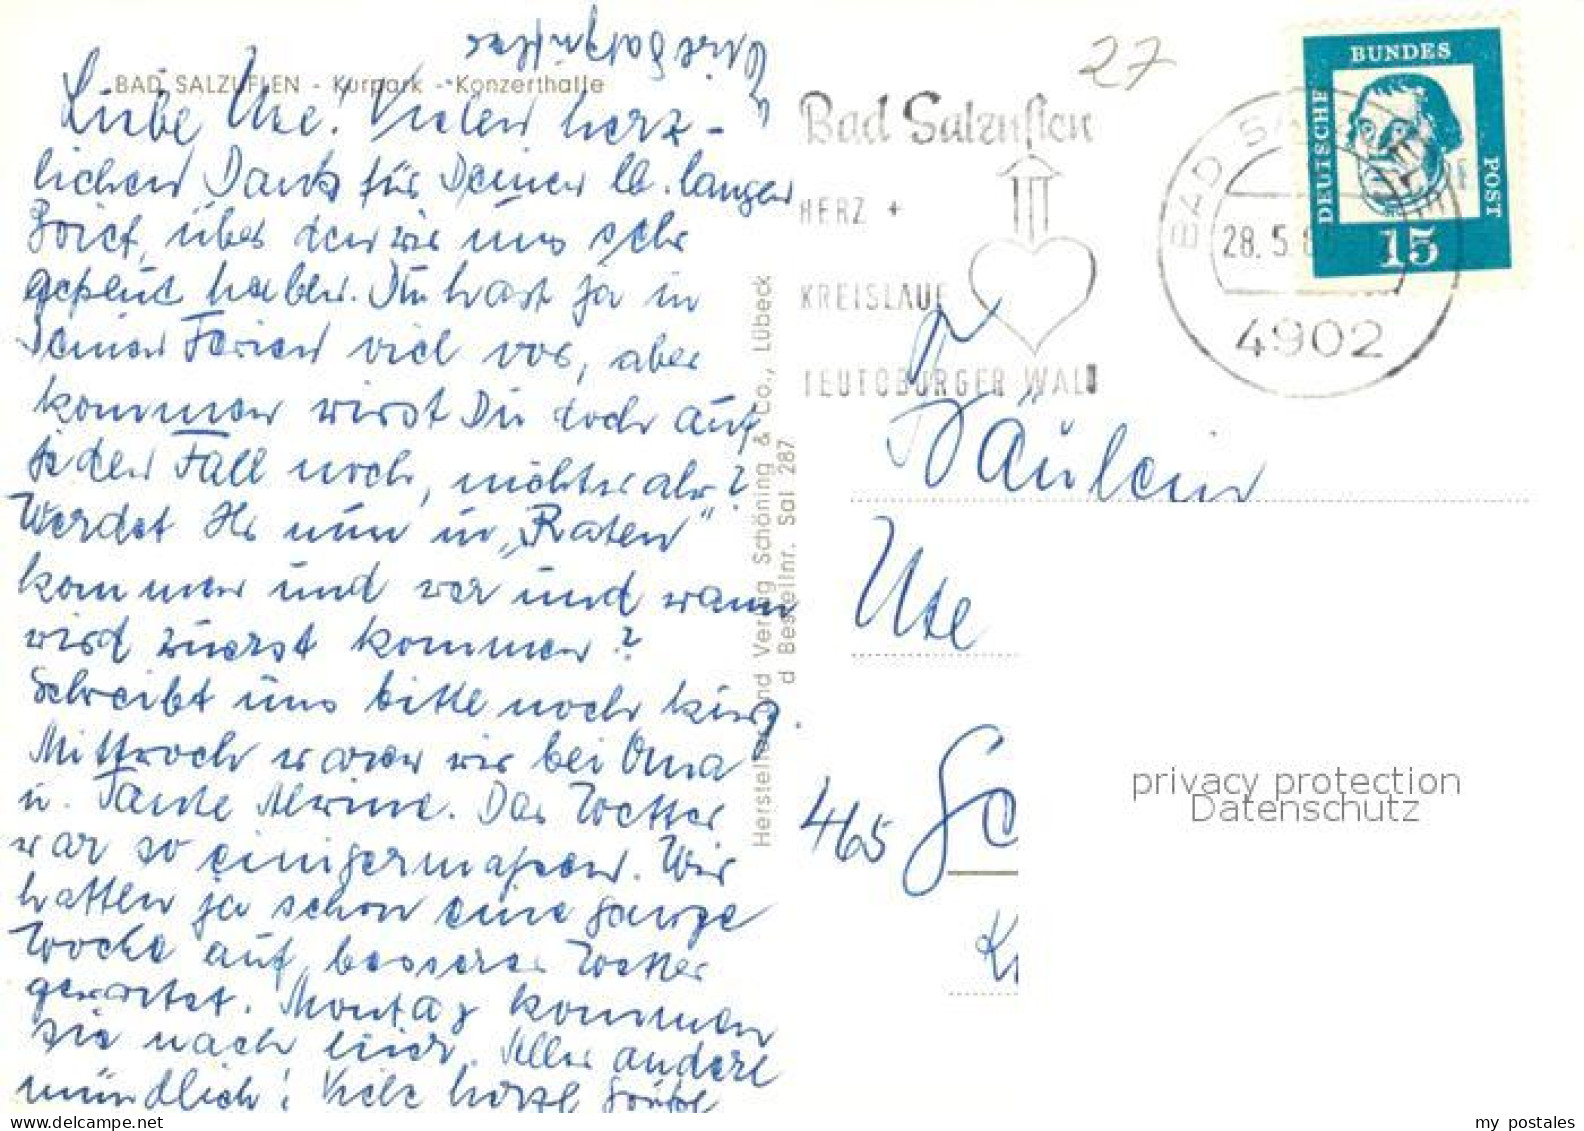 BAD SALZUFLEN - Kurpark - Konzerthalle
Liebe Ute! Vielen herz-
lichen Dank für Deinen lb. langen
Brief, über den wir uns sehr
gefreut haben. Du hast ja in
Deinen Ferien viel vor, aber
kommen wirst Du doch auf
jeden Fall noch, möchtest aber?
Werdet Ihr nun in „Raten"
kommen und wer und wann
wird zuerst kommen?
Schreibt uns bitte noch kurz.
Mittwoch waren wir bei Oma
u. Tante Alwine. Das Wetter
war so einigermaßen. Wir
hatten ja schon eine ganze
Woche auf besseres Wetter
gewartet. Montag kommen
sie nach hier. Alles andere
mündlich! Viele herzl Grüße
Hersteller und Verlag Schöning & Co., Lübeck
d Bestellnr. Sal 287
27
Bad Salzuflen
HERZ +
KREISLAUF
TEUTOBURGER WALD
BAD SA
28.5.6
4902
DEUTSCHE
BUNDES
POST
15
Fräulein
Ute
465
privacy protection
Datenschutz
my postales